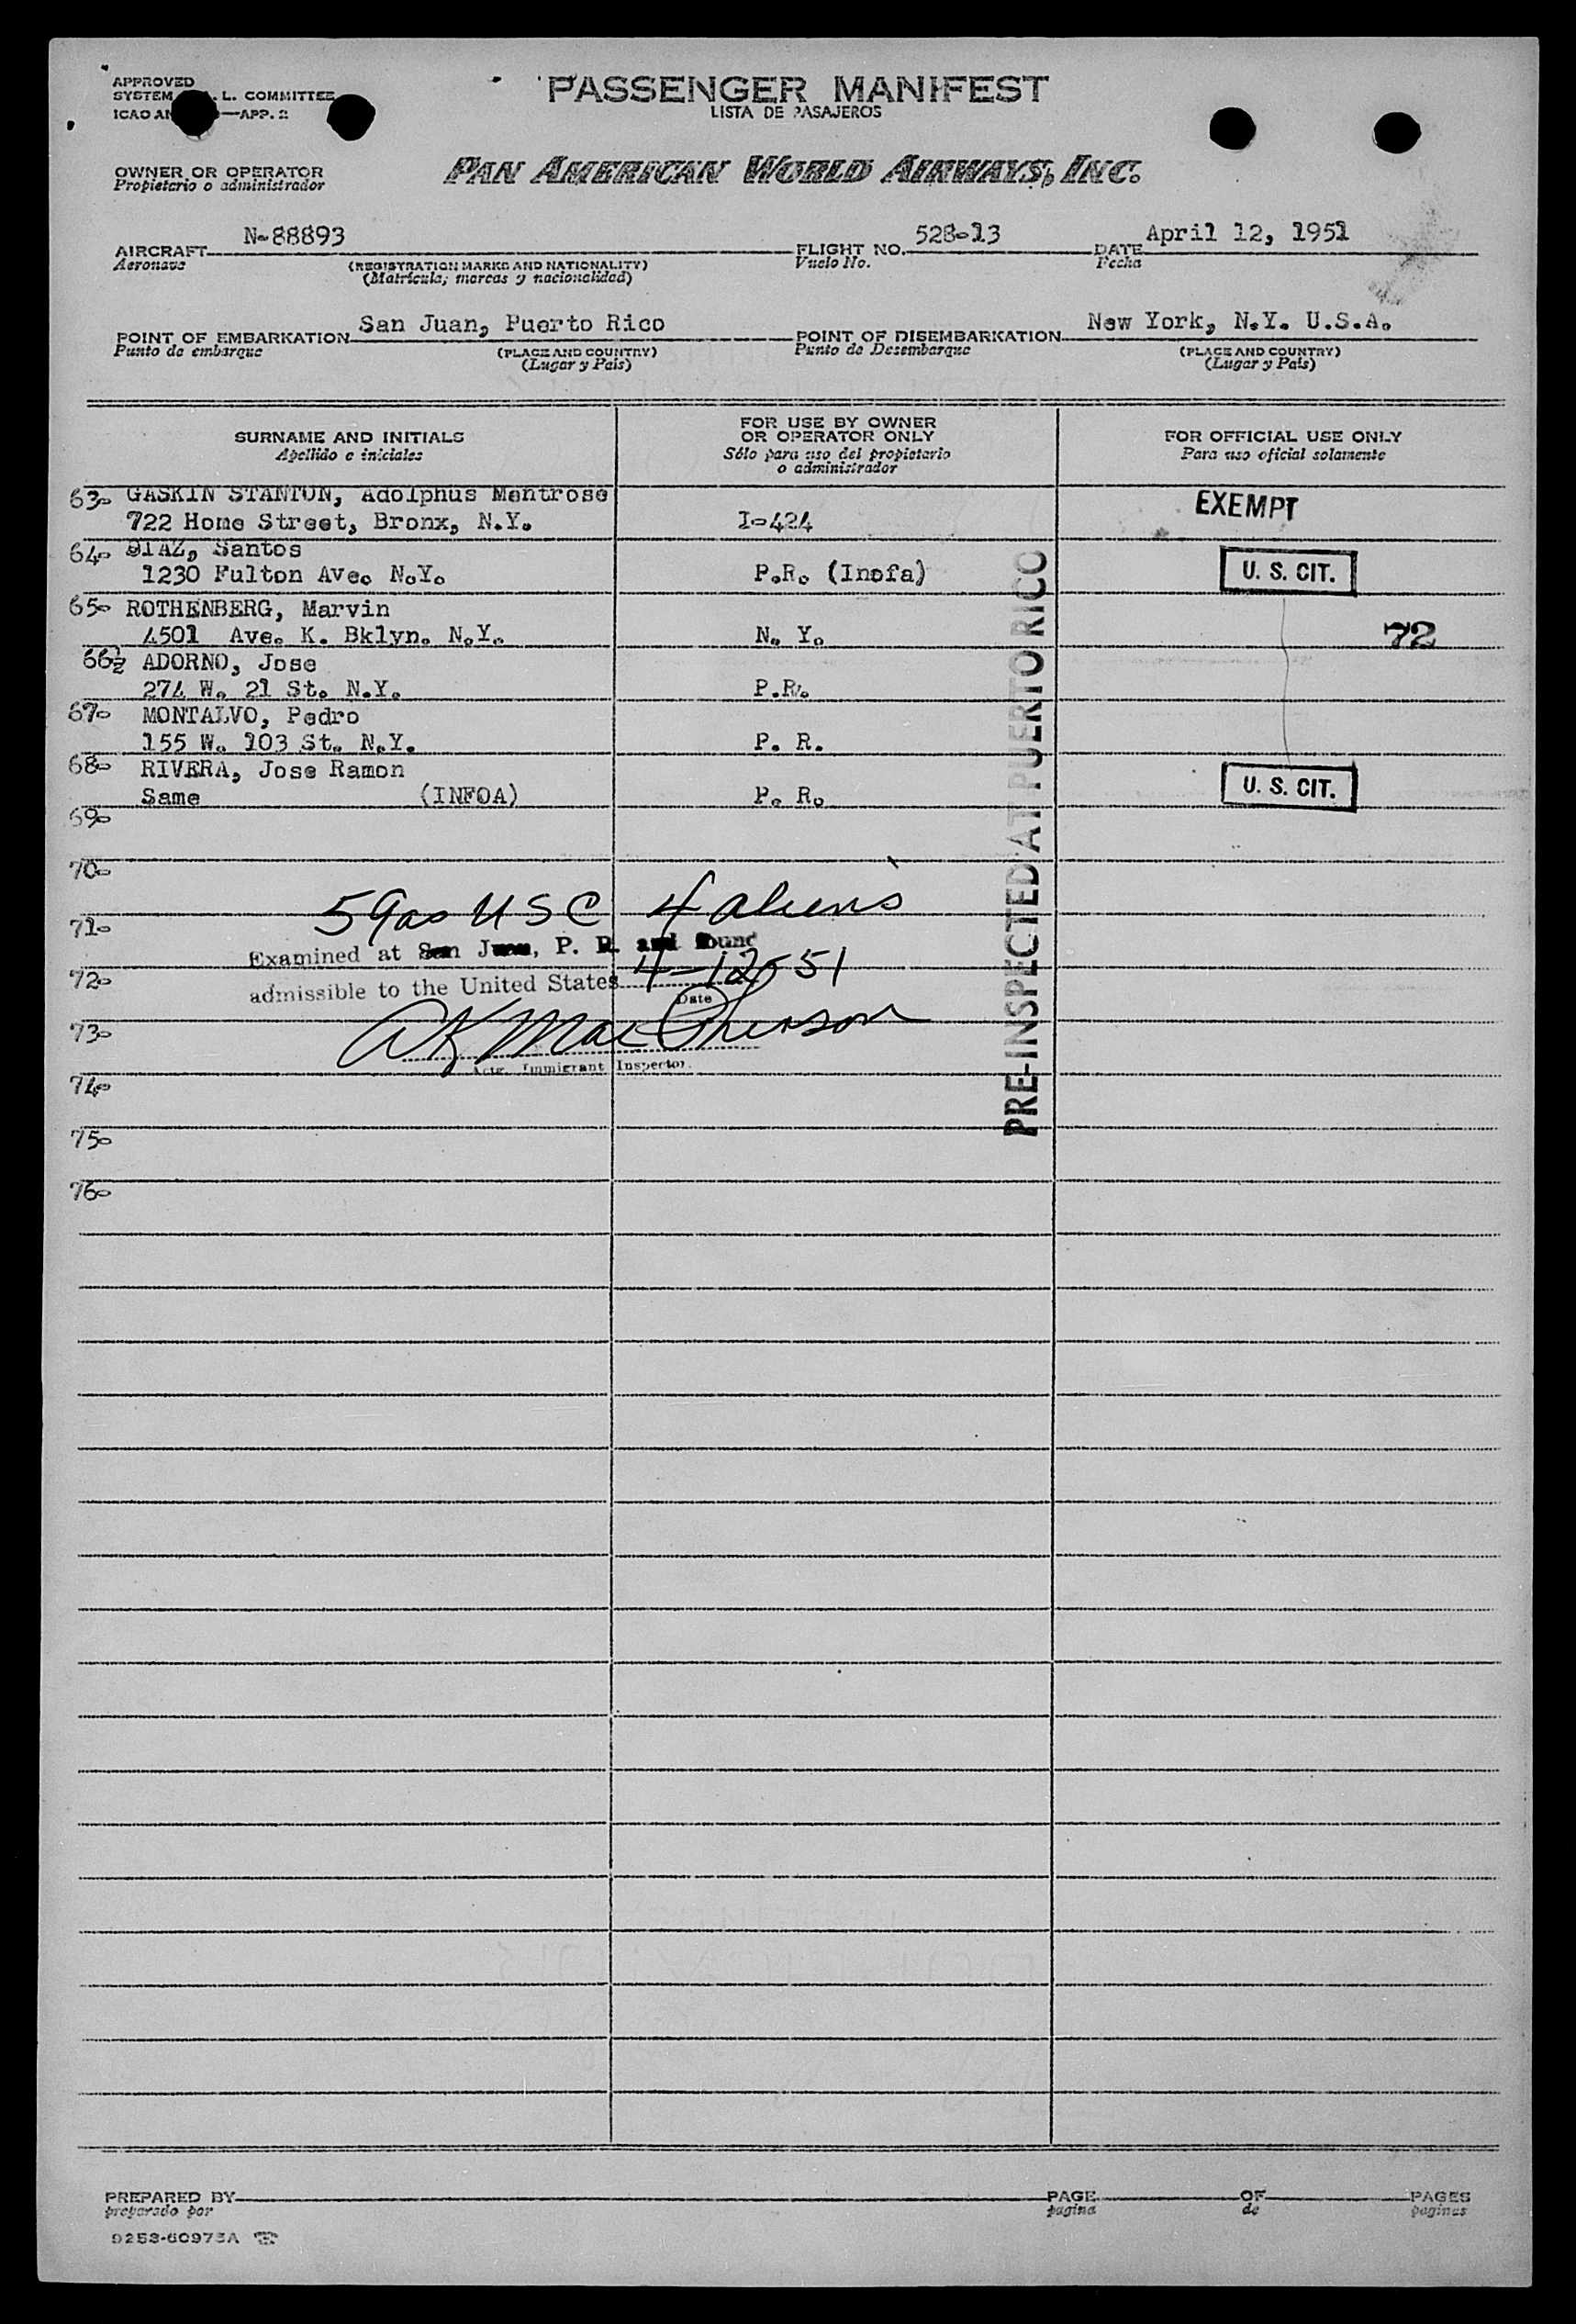 APPROVED
SYSTEM L. COMMITTEE
ICAO —APP. 2
PASSENGER MANIFEST
LISTA DE PASAJEROS
OWNER OR OPERATOR
Propietario o administrador
PAN AMERICAN WORLD AIRWAYS, INC.
AIRCRAFT N-88893 FLIGHT NO. 528-13 DATE April 12, 1951
Aeronave (REGISTRATION MARKS AND NATIONALITY) Vuelo No. Fecha
(Matrícula, marcas y nacionalidad)
POINT OF EMBARKATION San Juan, Puerto Rico POINT OF DISEMBARKATION New York, N.Y. U.S.A.
Punto de embarque (PLACE AND COUNTRY) Punto de Desembarque (PLACE AND COUNTRY)
(Lugar y País) (Lugar y País)
SURNAME AND INITIALS FOR USE BY OWNER OR OPERATOR ONLY FOR OFFICIAL USE ONLY
Apellido e iniciales Sólo para uso del propietario o administrador Para uso oficial solamente
63- GASKIN STANTON, Adolphus Mentrose EXEMPT
722 Home Street, Bronx, N.Y. I-424
64- DIAZ, Santos
1230 Fulton Ave. N.Y. P.R. (Inofa) U. S. CIT.
65- ROTHENBERG, Marvin
4501 Ave. K. Bklyn. N.Y. N. Y. 72
66½ ADORNO, Jose
274 W. 21 St. N.Y. P.R.
67- MONTALVO, Pedro
155 W. 103 St. N.Y. P. R.
68- RIVERA, Jose Ramon
Same (INFOA) P. R. U. S. CIT.
69-
70-
59 as USC 4 aliens
71-
Examined at San Juan, P. R. and found
72-
admissible to the United States 4-12-51
Date
73-
AK MacPherson
Actg. Immigrant Inspector.
74-
75-
76-
PRE-INSPECTED AT PUERTO RICO
PREPARED BY PAGE OF PAGES
preparado por pagina de paginas
9253-60973A